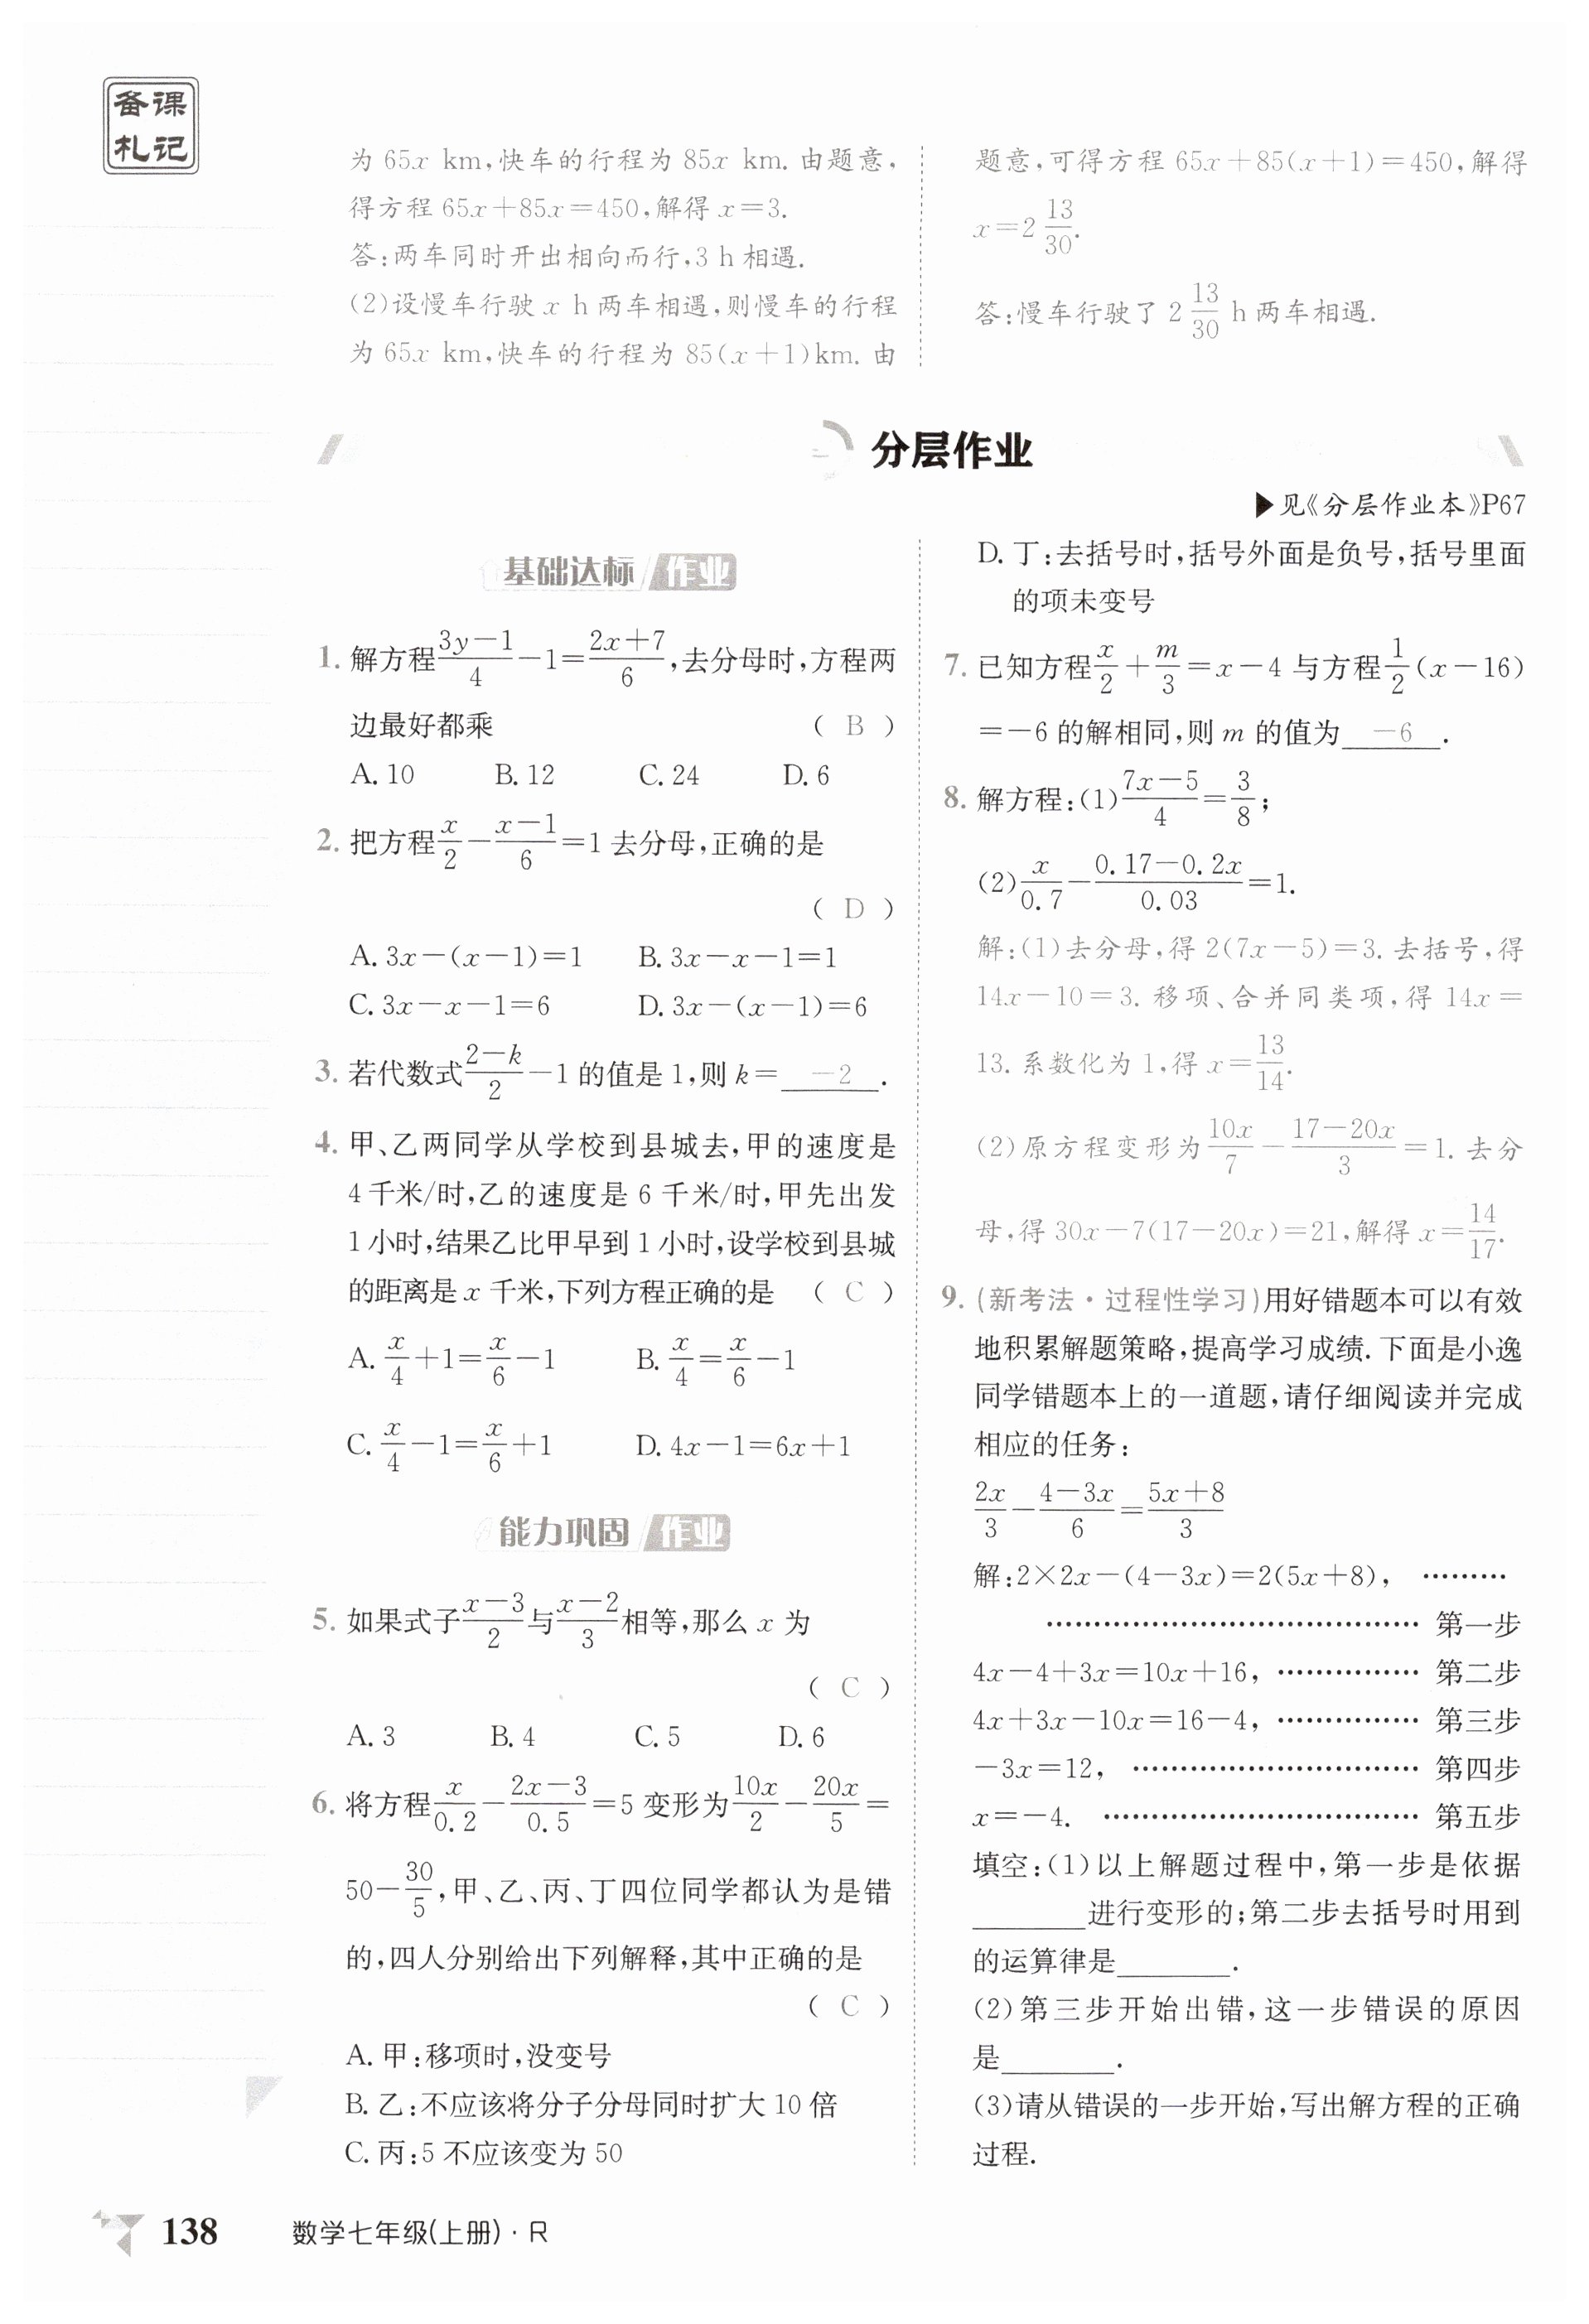 备课
札记
为 65x km,快车的行程为 85x km. 由题意,
得方程 65x+85x=450,解得 x=3.
答:两车同时开出相向而行,3 h 相遇.
(2)设慢车行驶 x h 两车相遇,则慢车的行程
为 65x km,快车的行程为 85(x+1)km. 由
题意,可得方程 65x+85(x+1)=450,解得
x=2 13/30.
答:慢车行驶了 2 13/30 h 两车相遇.
分层作业
▶见《分层作业本》P67
基础达标 作业
1. 解方程(3y-1)/4-1=(2x+7)/6,去分母时,方程两
边最好都乘 ( B )
A. 10 B. 12 C. 24 D. 6
2. 把方程x/2-(x-1)/6=1 去分母,正确的是
( D )
A. 3x-(x-1)=1 B. 3x-x-1=1
C. 3x-x-1=6 D. 3x-(x-1)=6
3. 若代数式(2-k)/2-1 的值是 1,则 k= -2 .
4. 甲、乙两同学从学校到县城去,甲的速度是
4 千米/时,乙的速度是 6 千米/时,甲先出发
1 小时,结果乙比甲早到 1 小时,设学校到县城
的距离是 x 千米,下列方程正确的是 ( C )
A. x/4+1=x/6-1 B. x/4=x/6-1
C. x/4-1=x/6+1 D. 4x-1=6x+1
能力巩固 作业
5. 如果式子(x-3)/2与(x-2)/3相等,那么 x 为
( C )
A. 3 B. 4 C. 5 D. 6
6. 将方程x/0.2-(2x-3)/0.5=5 变形为10x/2-20x/5=
50-30/5,甲、乙、丙、丁四位同学都认为是错
的,四人分别给出下列解释,其中正确的是
( C )
A. 甲:移项时,没变号
B. 乙:不应该将分子分母同时扩大 10 倍
C. 丙:5 不应该变为 50
D. 丁:去括号时,括号外面是负号,括号里面
的项未变号
7. 已知方程x/2+m/3=x-4 与方程1/2(x-16)
=-6 的解相同,则 m 的值为 -6 .
8. 解方程:(1)(7x-5)/4=3/8;
(2)x/0.7-(0.17-0.2x)/0.03=1.
解:(1)去分母,得 2(7x-5)=3. 去括号,得
14x-10=3. 移项、合并同类项,得 14x=
13. 系数化为 1,得 x=13/14.
(2)原方程变形为10x/7-(17-20x)/3=1. 去分
母,得 30x-7(17-20x)=21,解得 x=14/17.
9. (新考法·过程性学习)用好错题本可以有效
地积累解题策略,提高学习成绩. 下面是小逸
同学错题本上的一道题,请仔细阅读并完成
相应的任务:
2x/3-(4-3x)/6=(5x+8)/3
解:2×2x-(4-3x)=2(5x+8), ………
………………………………… 第一步
4x-4+3x=10x+16, …………… 第二步
4x+3x-10x=16-4, …………… 第三步
-3x=12, ………………………… 第四步
x=-4. …………………………… 第五步
填空:(1)以上解题过程中,第一步是依据
________进行变形的;第二步去括号时用到
的运算律是________.
(2)第三步开始出错,这一步错误的原因
是________.
(3)请从错误的一步开始,写出解方程的正确
过程.
138 数学七年级(上册)·R